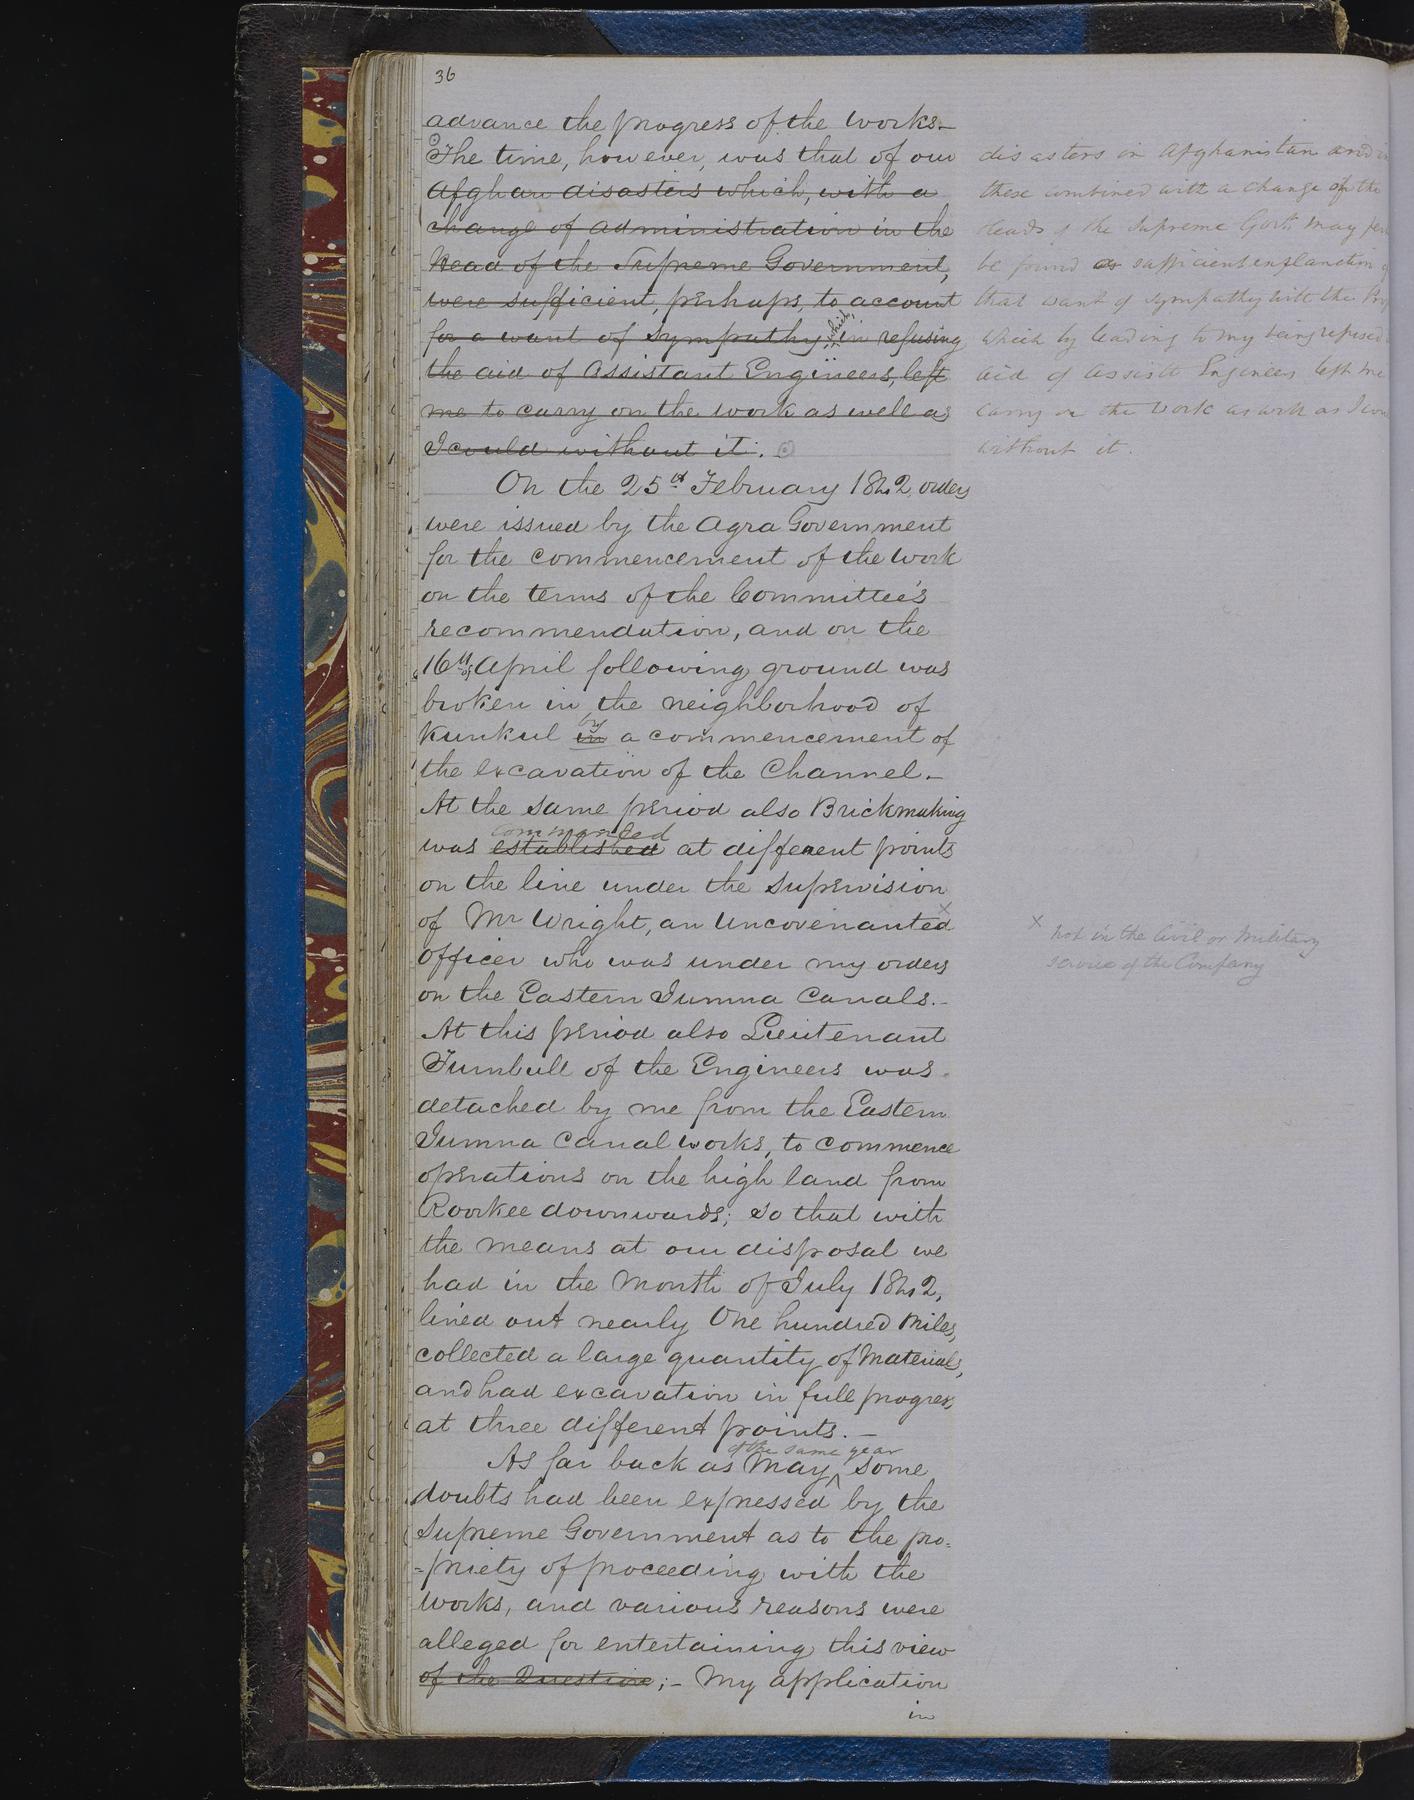 36
advance the progress of the works_
The time, however, was that of our
Afghan disasters which, with a
change of administration in the
Head of the Supreme Government,
were sufficient, perhaps, to account
for a want of sympathy, which, in refusing
the aid of Assistant Engineers, left
me to carry on the work as well as
I could without it.
disasters in Afghanistan and
these combined with a change of the
heads of the Supreme Govt. may
be found as sufficient explanation
that want of sympathy with the
which by leading to my being refused
aid of Assistt Engineers left me
carry on the work as well as I
without it.
On the 25th February 1842, orders
were issued by the Agra Government
for the commencement of the work
on the terms of the Committee's
recommendation, and on the
16th of April following ground was
broken in the neighborhood of
Kunkul in by a commencement of
the excavation of the Channel._
At the same period also Brickmaking
was established commenced at different points
on the line under the supervision
of Mr Wright, an Uncovenanted x
officer who was under my orders
x not in the Civil or Military
service of the Company
on the Eastern Jumna Canals._
At this period also Lieutenant
Turnbull of the Engineers was
detached by me from the Eastern
Jumna Canal works, to commence
operations on the high land from
Roorkee downwards; so that with
the means at our disposal we
had in the Month of July 1842,
lined out nearly One hundred Miles,
collected a large quantity of Materials,
and had excavation in full progress
at three different points._
As far back as May of the same year some
doubts had been expressed by the
Supreme Government as to the pro=
=priety of proceeding with the
works, and various reasons were
alleged for entertaining this view
of the Question;- My application
in